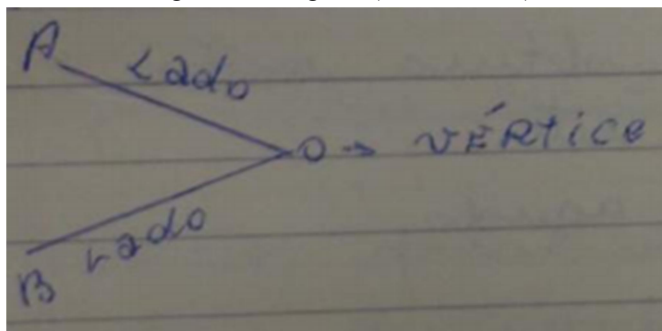 A
Lado
O → VÉRtice
Lado
B